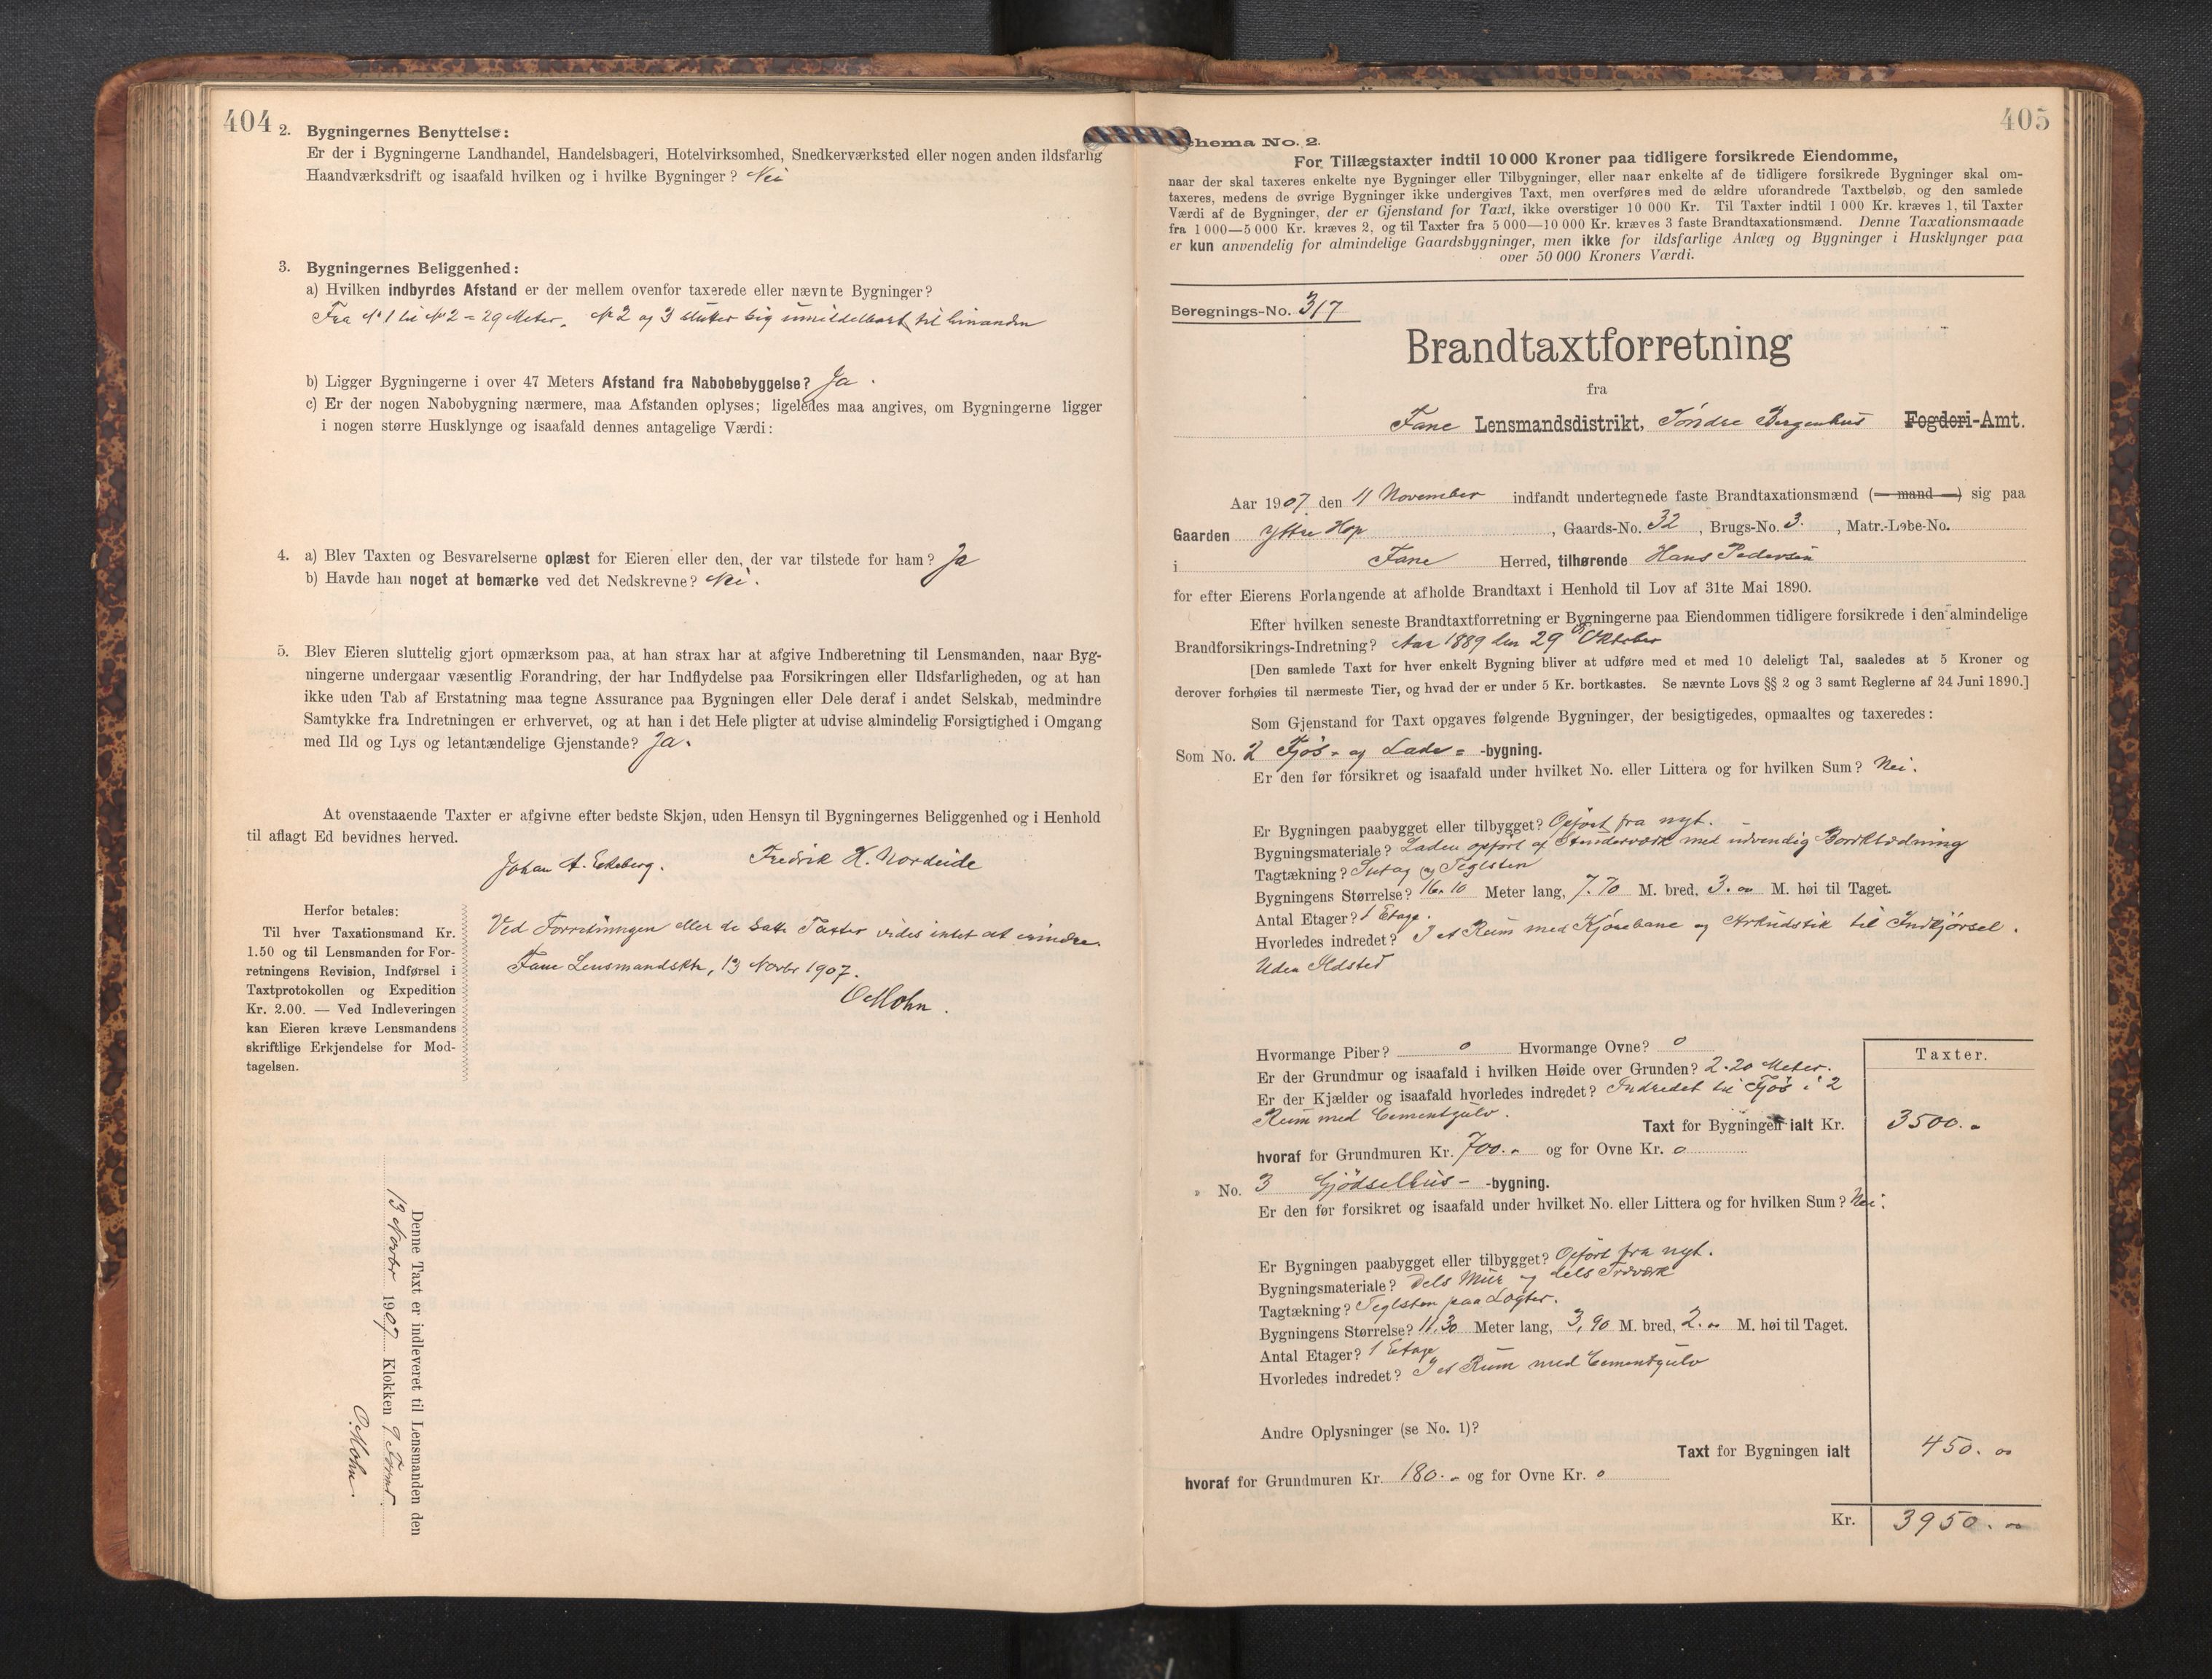 404
2. Bygningernes Benyttelse:
Er der i Bygningerne Landhandel, Handelsbageri, Hotelvirksomhed, Snedkerværksted eller nogen anden ildsfarlig
Haandværksdrift og isaafald hvilken og i hvilke Bygninger? Nei
3. Bygningernes Beliggenhed:
a) Hvilken indbyrdes Afstand er der mellem ovenfor taxerede eller nævnte Bygninger?
Fra N° 1 til N° 2 = 29 Meter. N° 2 og 3 slutter sig umiddelbart til hinanden
b) Ligger Bygningerne i over 47 Meters Afstand fra Nabobebyggelse? Ja.
c) Er der nogen Nabobygning nærmere, maa Afstanden oplyses; ligeledes maa angives, om Bygningerne ligger
i nogen større Husklynge og isaafald dennes antagelige Værdi:
4. a) Blev Taxten og Besvarelserne oplæst for Eieren eller den, der var tilstede for ham? Ja
b) Havde han noget at bemærke ved det Nedskrevne? Nei.
5. Blev Eieren sluttelig gjort opmærksom paa, at han strax har at afgive Indberetning til Lensmanden, naar Byg-
ningerne undergaar væsentlig Forandring, der har Indflydelse paa Forsikringen eller Ildsfarligheden, og at han
ikke uden Tab af Erstatning maa tegne Assurance paa Bygningen eller Dele deraf i andet Selskab, medmindre
Samtykke fra Indretningen er erhvervet, og at han i det Hele pligter at udvise almindelig Forsigtighed i Omgang
med Ild og Lys og letantændelige Gjenstande? Ja.
At ovenstaaende Taxter er afgivne efter bedste Skjøn, uden Hensyn til Bygningernes Beliggenhed og i Henhold
til aflagt Ed bevidnes herved.
Johan A. Eekeberg. Fredrik H. Nordeide
Herfor betales:
Til hver Taxationsmand Kr.
1.50 og til Lensmanden for For-
retningens Revision, Indførsel i
Taxtprotokollen og Expedition
Kr. 2.00. — Ved Indleveringen
kan Eieren kræve Lensmandens
skriftlige Erkjendelse for Mod-
tagelsen.
Ved Forretningen eller de satte Taxter vides intet at erindre.
Fane Lensmandsktr, 13 Novbr 1907.
O Mohn.
Denne Taxt er indleveret til Lensmanden den
13 Novbr 1907 Klokken 9 Formd.
O Mohn.
405
chema No. 2.
For Tillægstaxter indtil 10 000 Kroner paa tidligere forsikrede Eiendomme,
naar der skal taxeres enkelte nye Bygninger eller Tilbygninger, eller naar enkelte af de tidligere forsikrede Bygninger skal om-
taxeres, medens de øvrige Bygninger ikke undergives Taxt, men overføres med de ældre uforandrede Taxtbeløb, og den samlede
Værdi af de Bygninger, der er Gjenstand for Taxt, ikke overstiger 10 000 Kr. Til Taxter indtil 1 000 Kr. kræves 1, til Taxter
fra 1 000—5 000 Kr. kræves 2, og til Taxter fra 5 000—10 000 Kr. kræves 3 faste Brandtaxationsmænd. Denne Taxationsmaade
er kun anvendelig for almindelige Gaardsbygninger, men ikke for ildsfarlige Anlæg og Bygninger i Husklynger paa
over 50 000 Kroners Værdi.
Beregnings-No. 317
Brandtaxtforretning
fra
Fane Lensmandsdistrikt, Søndre Bergenhus Fogderi-Amt.
Aar 1907 den 11 November indfandt undertegnede faste Brandtaxationsmænd (— mand —) sig paa
Gaarden Ytre Hop, Gaards-No. 32, Brugs-No. 3., Matr.-Løbe-No.
i Fane Herred, tilhørende Hans Pedersen
for efter Eierens Forlangende at afholde Brandtaxt i Henhold til Lov af 31te Mai 1890.
Efter hvilken seneste Brandtaxtforretning er Bygningerne paa Eiendommen tidligere forsikrede i den almindelige
Brandforsikrings-Indretning? Aar 1889 den 29 Oktober
[Den samlede Taxt for hver enkelt Bygning bliver at udføre med et med 10 deleligt Tal, saaledes at 5 Kroner og
derover forhøies til nærmeste Tier, og hvad der er under 5 Kr. bortkastes. Se nævnte Lovs §§ 2 og 3 samt Reglerne af 24 Juni 1890.]
Som Gjenstand for Taxt opgaves følgende Bygninger, der besigtigedes, opmaaltes og taxeredes:
Som No. 2 Fjøs- og Lade- -bygning.
Er den før forsikret og isaafald under hvilket No. eller Littera og for hvilken Sum? Nei.
Er Bygningen paabygget eller tilbygget? Opført fra nyt.
Bygningsmateriale? Laden opført af Stenderværk med udvendig Bordklædning
Tagtækning? Sutag og Teglsten
Bygningens Størrelse? 16.10 Meter lang, 7.70 M. bred, 3.00 M. høi til Taget.
Antal Etager? 1 Etage.
Hvorledes indredet? I et Rum med Kjørebane og til Indkjørsel.
Uden Ildsted
Hvormange Piber? 0 Hvormange Ovne? 0
Er der Grundmur og isaafald i hvilken Høide over Grunden? 2.20 Meter.
Er der Kjælder og isaafald hvorledes indredet? Indredet til Fjøs i 2
Rum med Cementgulv.
Taxter.
Taxt for Bygningen ialt Kr. 3500.-
hvoraf for Grundmuren Kr. 700.- og for Ovne Kr. 0
" No. 3 Gjødselhus- -bygning.
Er den før forsikret og isaafald under hvilket No. eller Littera og for hvilken Sum? Nei.
Er Bygningen paabygget eller tilbygget? Opført fra nyt.
Bygningsmateriale? Dels Mur og dels Træværk
Tagtækning? Teglsten paa Lægter.
Bygningens Størrelse? 11.30 Meter lang, 3,90 M. bred, 2.00 M. høi til Taget.
Antal Etager? 1 Etage
Hvorledes indredet? I et Rum med Cementgulv
Andre Oplysninger (se No. 1)?
Taxt for Bygningen ialt 450.00
hvoraf for Grundmuren Kr. 180.- og for Ovne Kr. 0
Kr. 3950.00